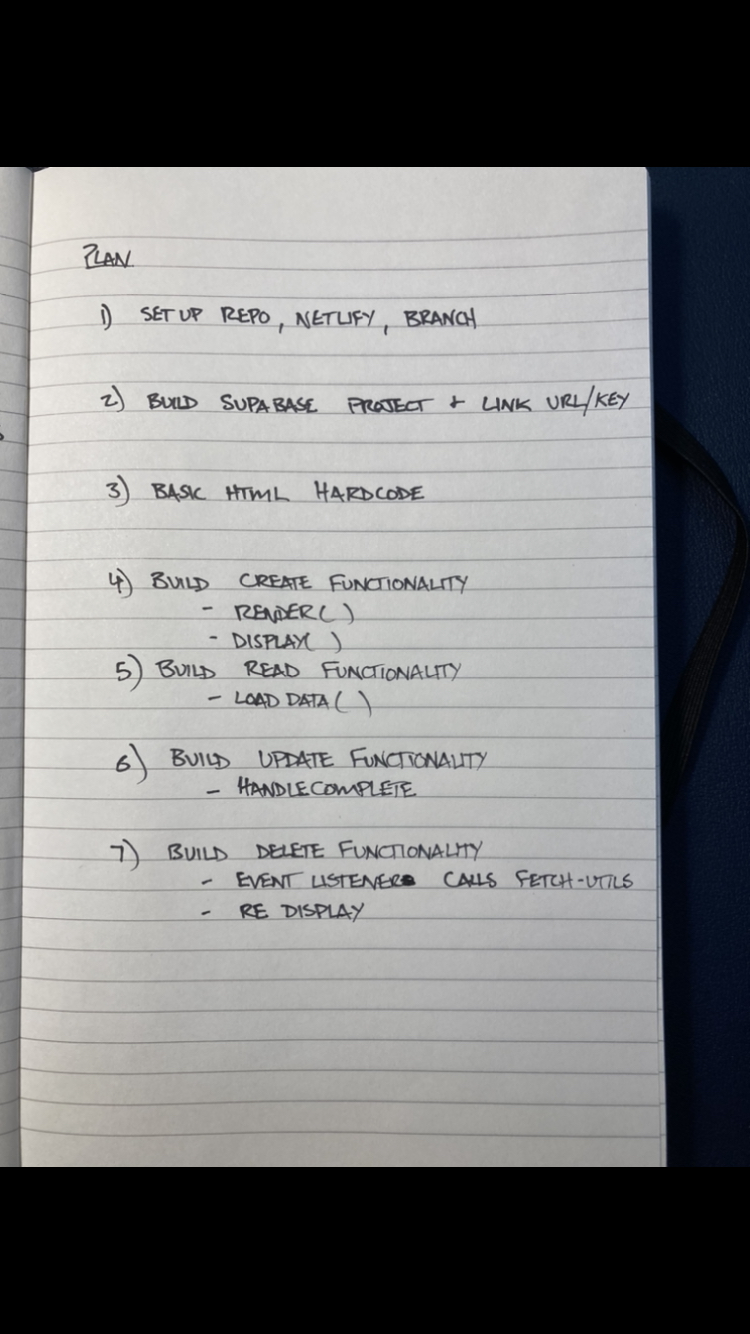 PLAN
1) SET UP REPO, NETLIFY, BRANCH
2) BUILD SUPABASE PROJECT + LINK URL/KEY
3) BASIC HTML HARDCODE
4) BUILD CREATE FUNCTIONALITY
- RENDER( )
- DISPLAY( )
5) BUILD READ FUNCTIONALITY
- LOAD DATA( )
6) BUILD UPDATE FUNCTIONALITY
- HANDLECOMPLETE
7) BUILD DELETE FUNCTIONALITY
- EVENT LISTENER CALLS FETCH-UTILS
- RE DISPLAY